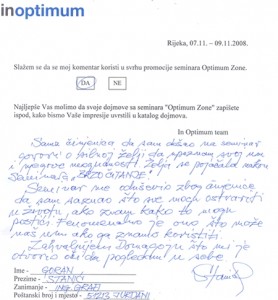 inoptimum
Rijeka, 07.11. – 09.11.2008.
Slažem se da se moj komentar koristi u svrhu promocije seminara Optimum Zone.
DA
NE
Najljepše Vas molimo da svoje dojmove sa seminara "Optimum Zone" zapišete
ispod, kako bismo Vaše impresije uvrstili u katalog dojmova.
In Optimum team
Sama činjenica da sam došao na seminar
govori o želji da upoznam svoj um
i njegove mogućnosti. Želja se pojačala nakon
seminara BRZO ČITANJE!
Seminar me oduševio zbog činjenice
da sam saznao što sve mogu ostvariti
u životu, ako znam kako to mogu
postići. Fenomenalno je ovo što može
naš um ako ga znamo koristiti.
Zahvaljujem Domagoju što mi je
otvorio oči da pogledam u sebe!
Ime – GORAN
Prezime – STANIĆ
Zanimanje – ING. GRAĐ.
Poštanski broj i mjesto – JURDANI